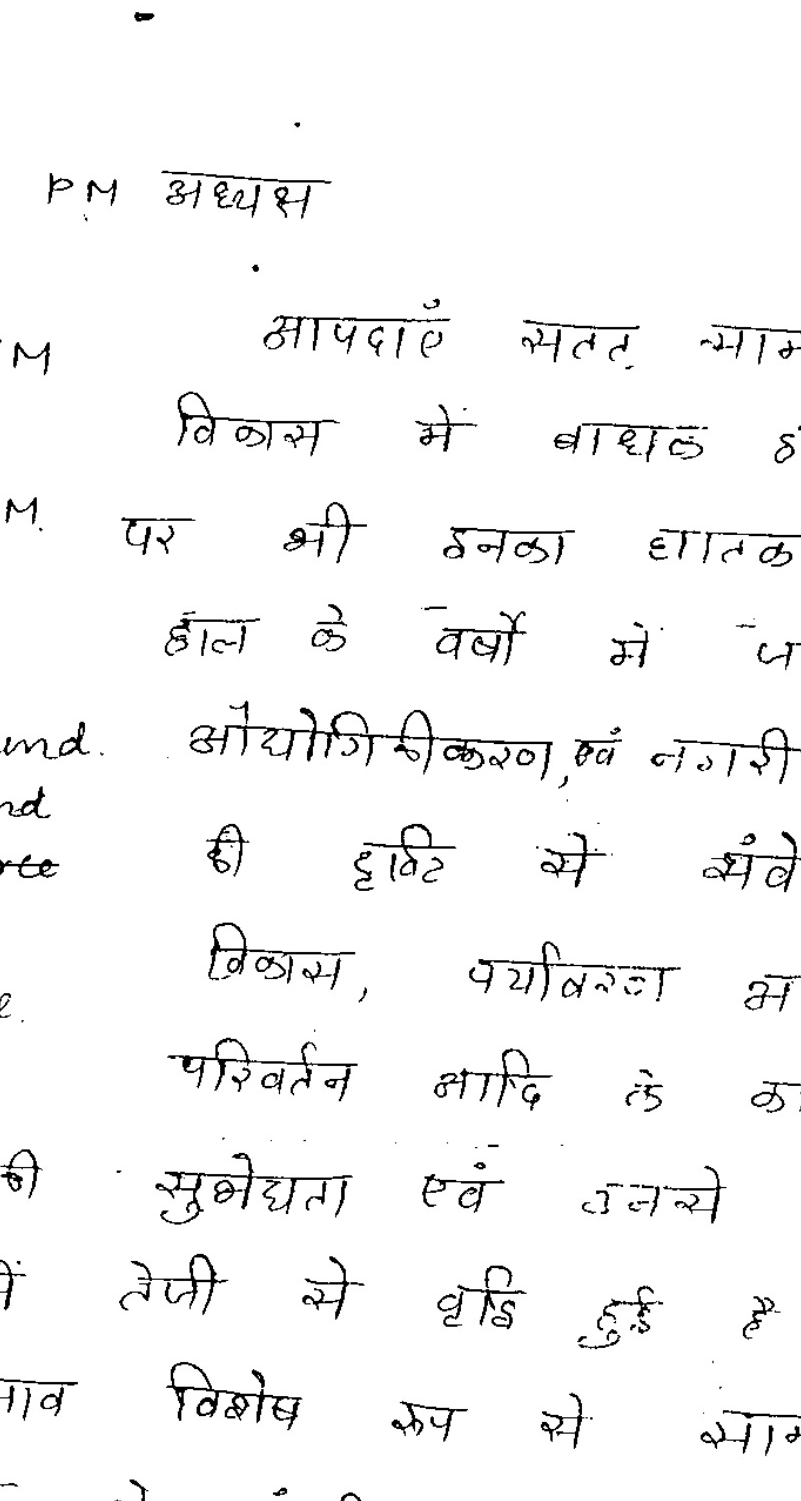 PM अध्यक्ष
M आपदाएँ सतत्
विकास में बाधक
M. पर भी इनका घातक
हाल के वर्षों में
औद्योगिकीकरण, एवं नगरी
की दृष्टि से संवे
विकास, पर्यावरण
परिवर्तन आदि के
की सुभेद्यता एवं उनसे
में तेजी से वृद्धि हुई है
विशेष रूप से